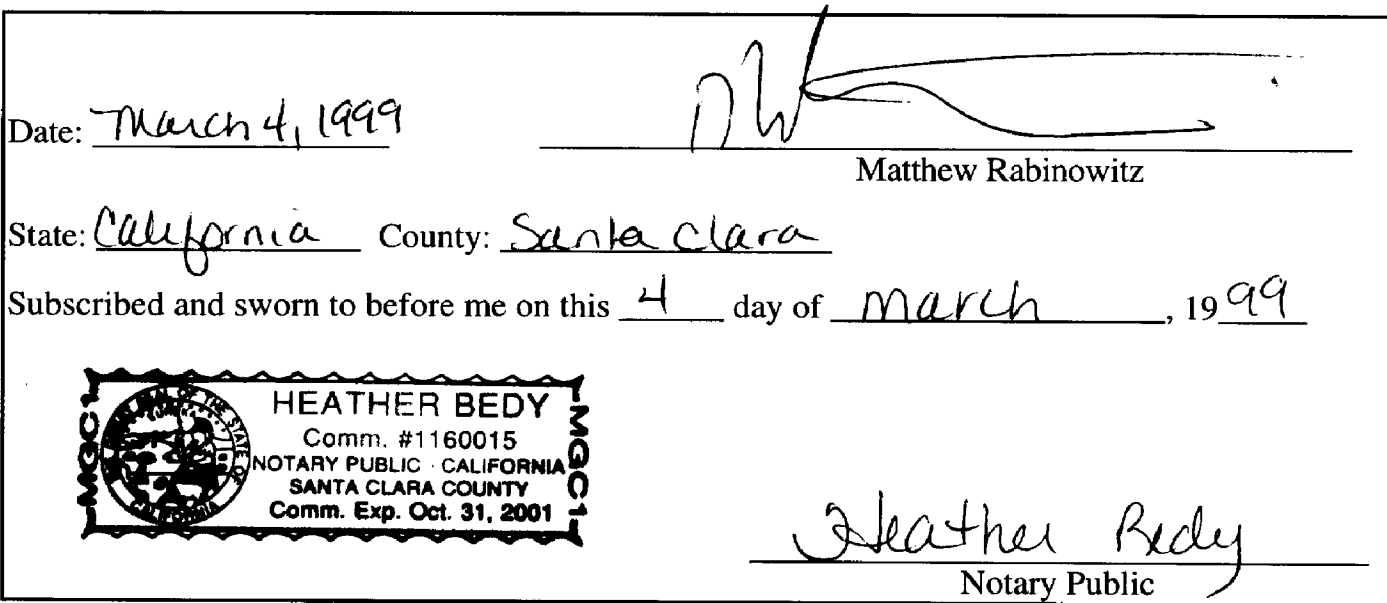 Date: March 4, 1999
Matthew Rabinowitz
State: California County: Santa Clara
Subscribed and sworn to before me on this 4 day of March, 1999
MGC1
HEATHER BEDY
Comm. #1160015
NOTARY PUBLIC · CALIFORNIA
SANTA CLARA COUNTY
Comm. Exp. Oct. 31, 2001
MGC1
Heather Bedy
Notary Public